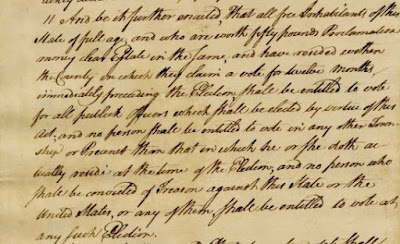 11 And be it further enacted, That all free Inhabitants of this
State of full age, and who are worth fifty pounds Proclamation
money clear Estate in the same, and have resided within
the County in which they claim a vote for twelve months
immediately preceding the Election, shall be entitled to vote
for all publick Officers which shall be elected by virtue of this
Act, and no person shall be entitled to vote in any other Town-
ship or Precinct than that in which he or she doth ac-
tually reside at the time of the Election, and no person who
shall be convicted of Treason against this State or the
United States, or any of them, shall be entitled to vote at
any such Election.